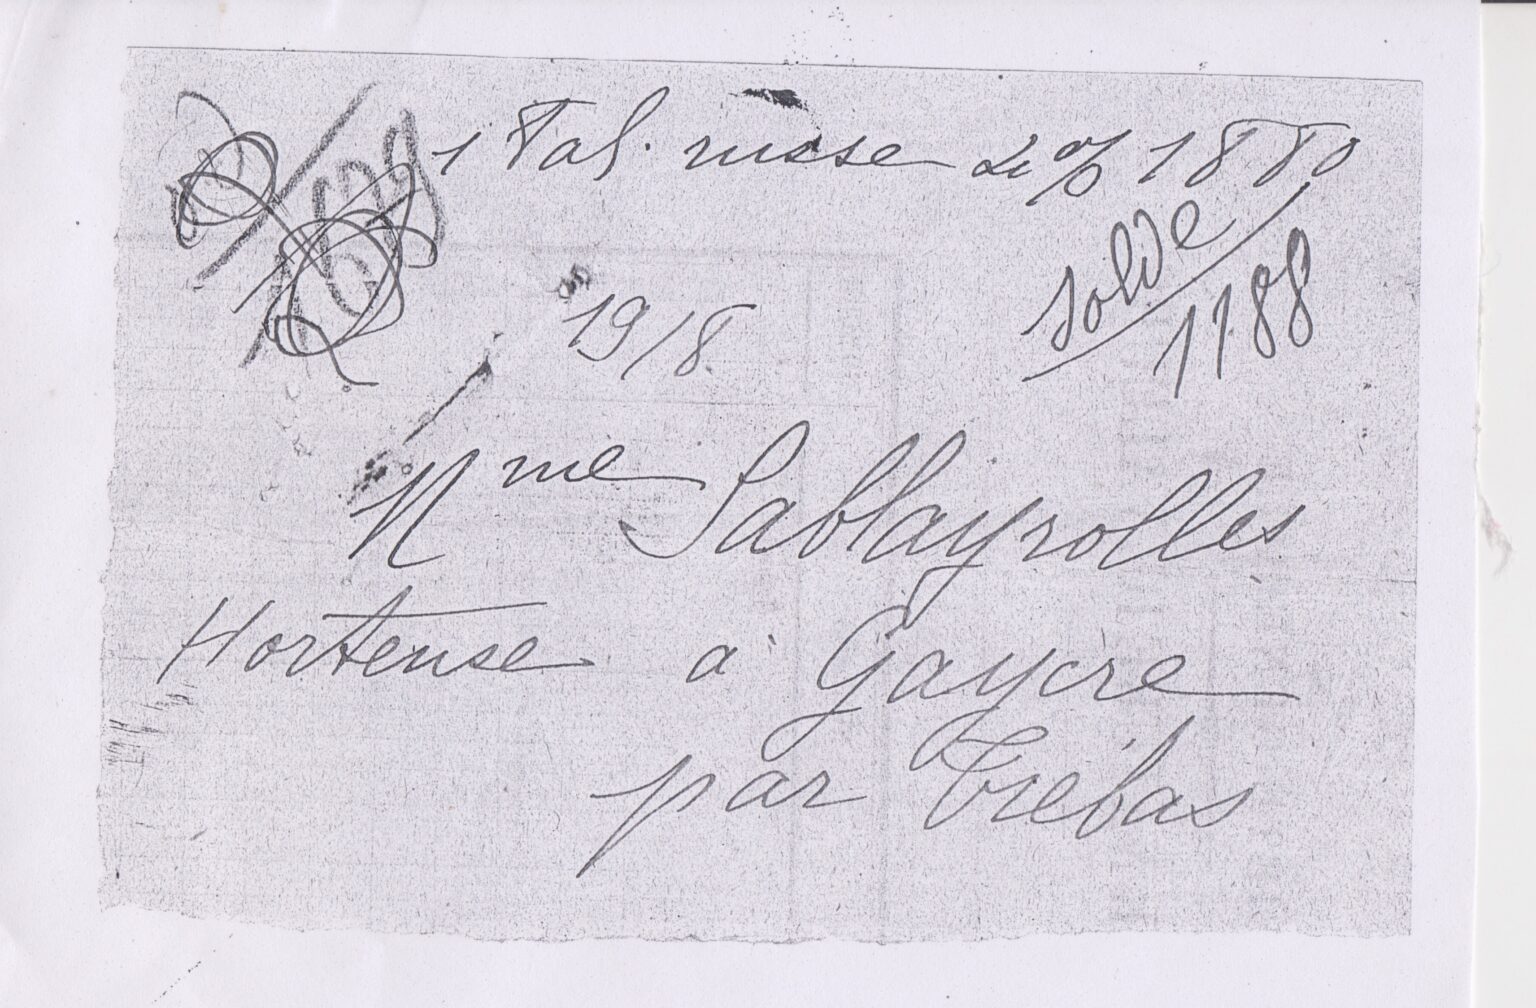 1 Val. russe 4% 1880
solde
1188
19/8.
Mme Sablayrolles
Hortense à Gaycre
par Trébas